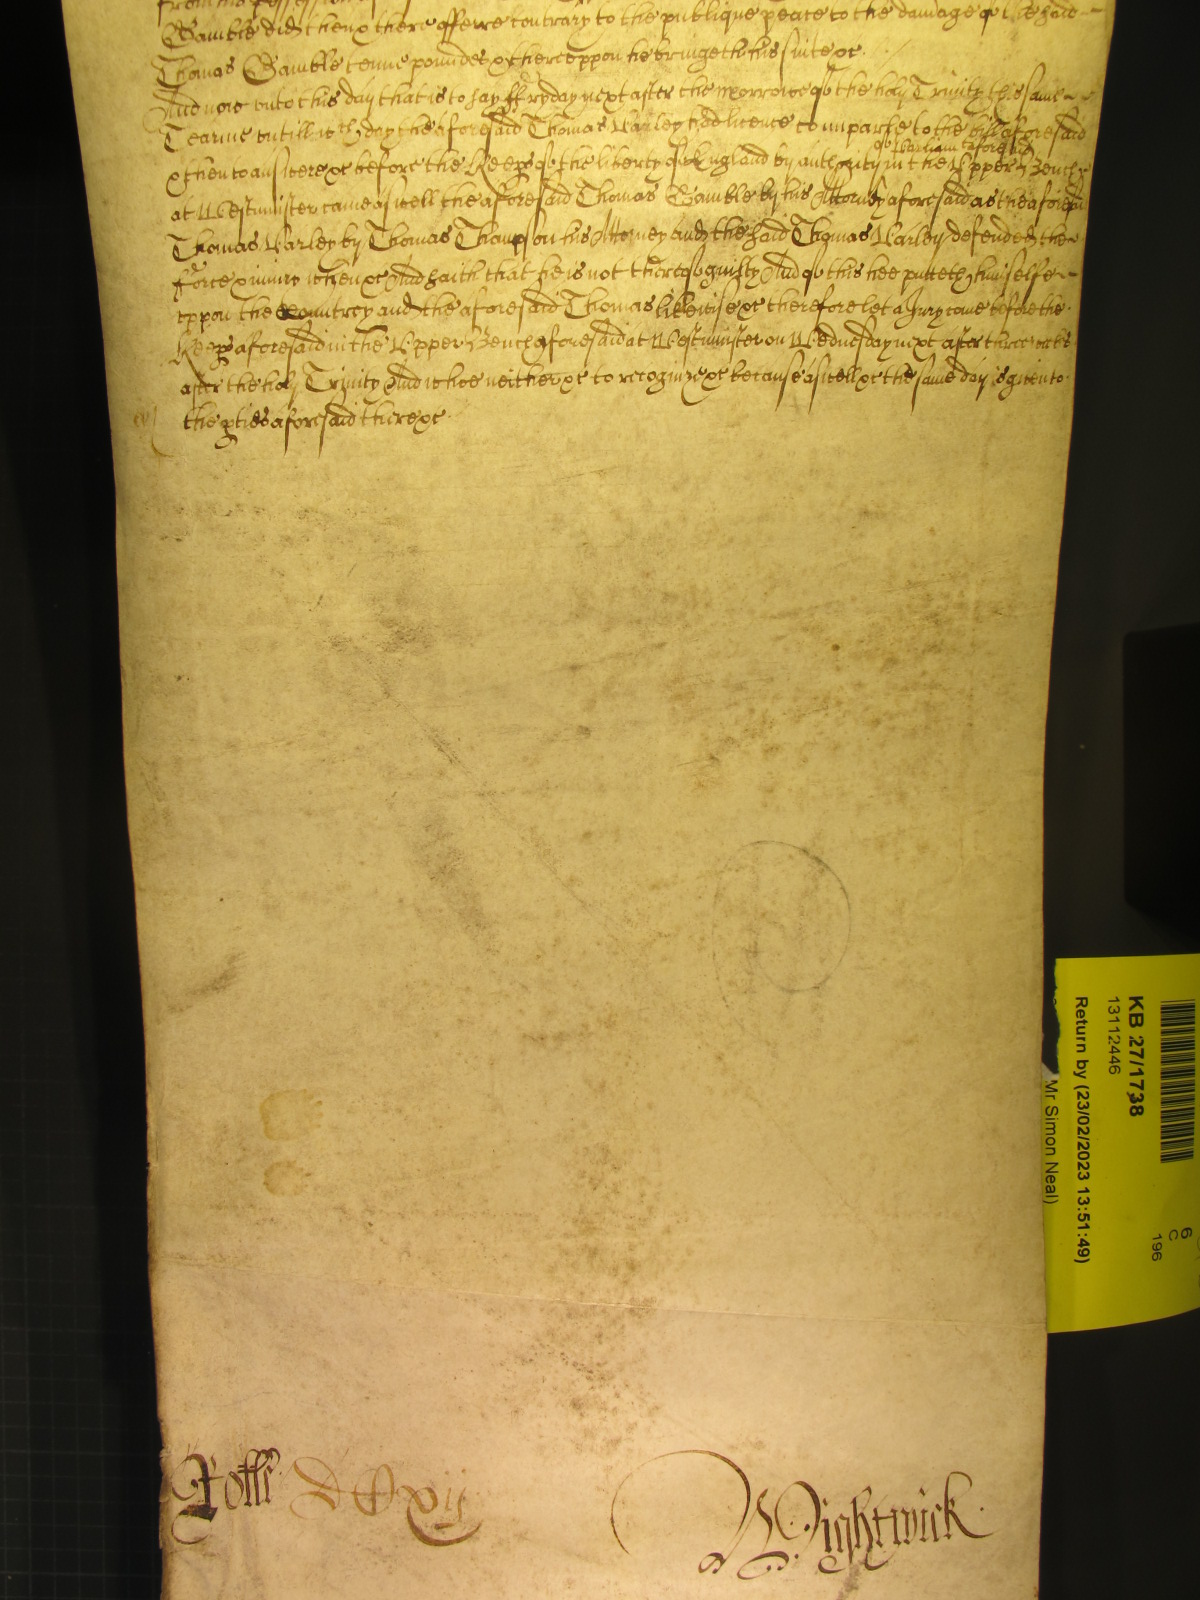 from his possession
Gamble did then & there offerre contrary to the publique peace to the damage of the said
Thomas Gamble tenne poundes & thereuppon he bringeth his suite &c.
And now unto this day that is to say ffryday next after the morrowe of the holy Trinity this same
Tearme untill wch day the aforesaid Thomas Warley had licence to imparle to the bill aforesaid
of Parliam t aforesaid
& then to answere &c before the Keeps of the liberty of England by authority in the Upper Bench
at Westminster came aswell the aforesaid Thomas Gamble by his Attorney aforesaid as the aforesaid
Thomas Warley by Thomas Thompson his Attorney and the said Thomas Warley defended the
force & iniury when &c And saith that he is not thereof guilty And of this hee putteth himselfe
uppon the Countrey and the aforesaid Thomas likewise &c therefore let a Jury come before the
Keeps aforesaid in the Upper Bench aforesaid at Westminster on Wednesday next after three weeks
after the holy Trinity And whoe neither &c to recognize &c because aswell &c the same day is given to
the pties aforesaid there &c
Rotli DCxij
Wightwick
KB 27/1738
13112446
Return by (23/02/2023 13:51:49)
Mr Simon Neal)
6
C
196